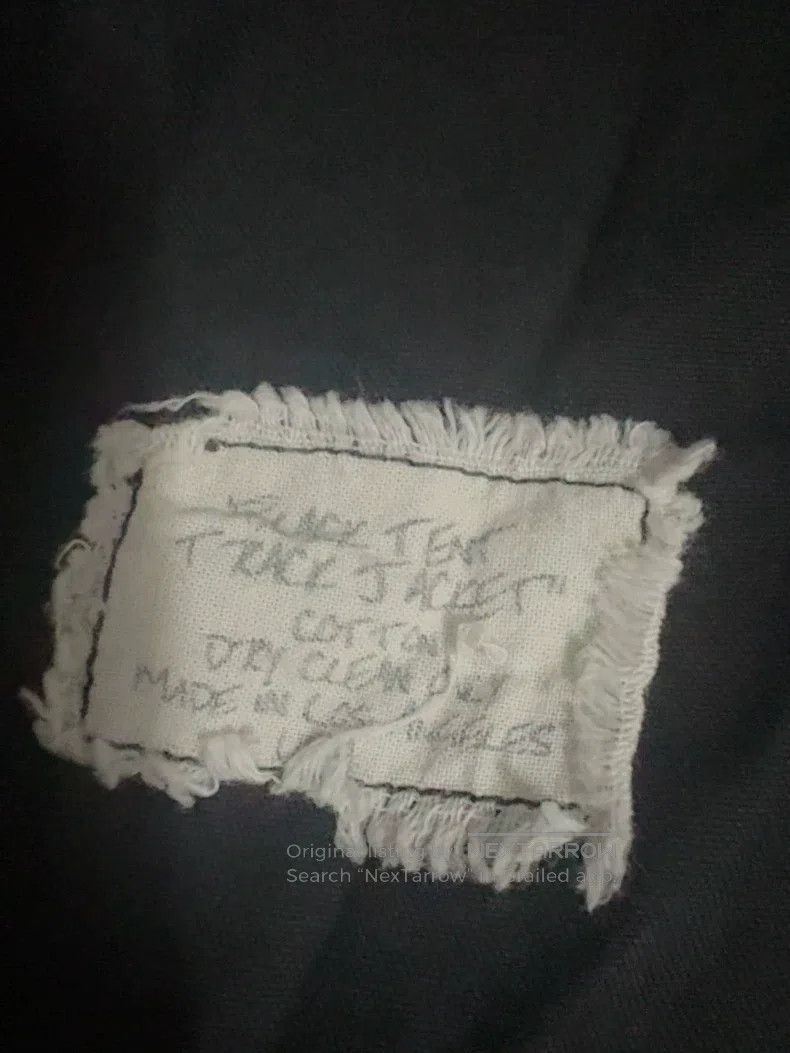 BLACK TENT
TRACK JACKET"
COTTON
DRY CLEAN ONLY
MADE IN LOS ANGELES
Original listing
NEXTARROW
Search "NexTarrow" in Grailed app